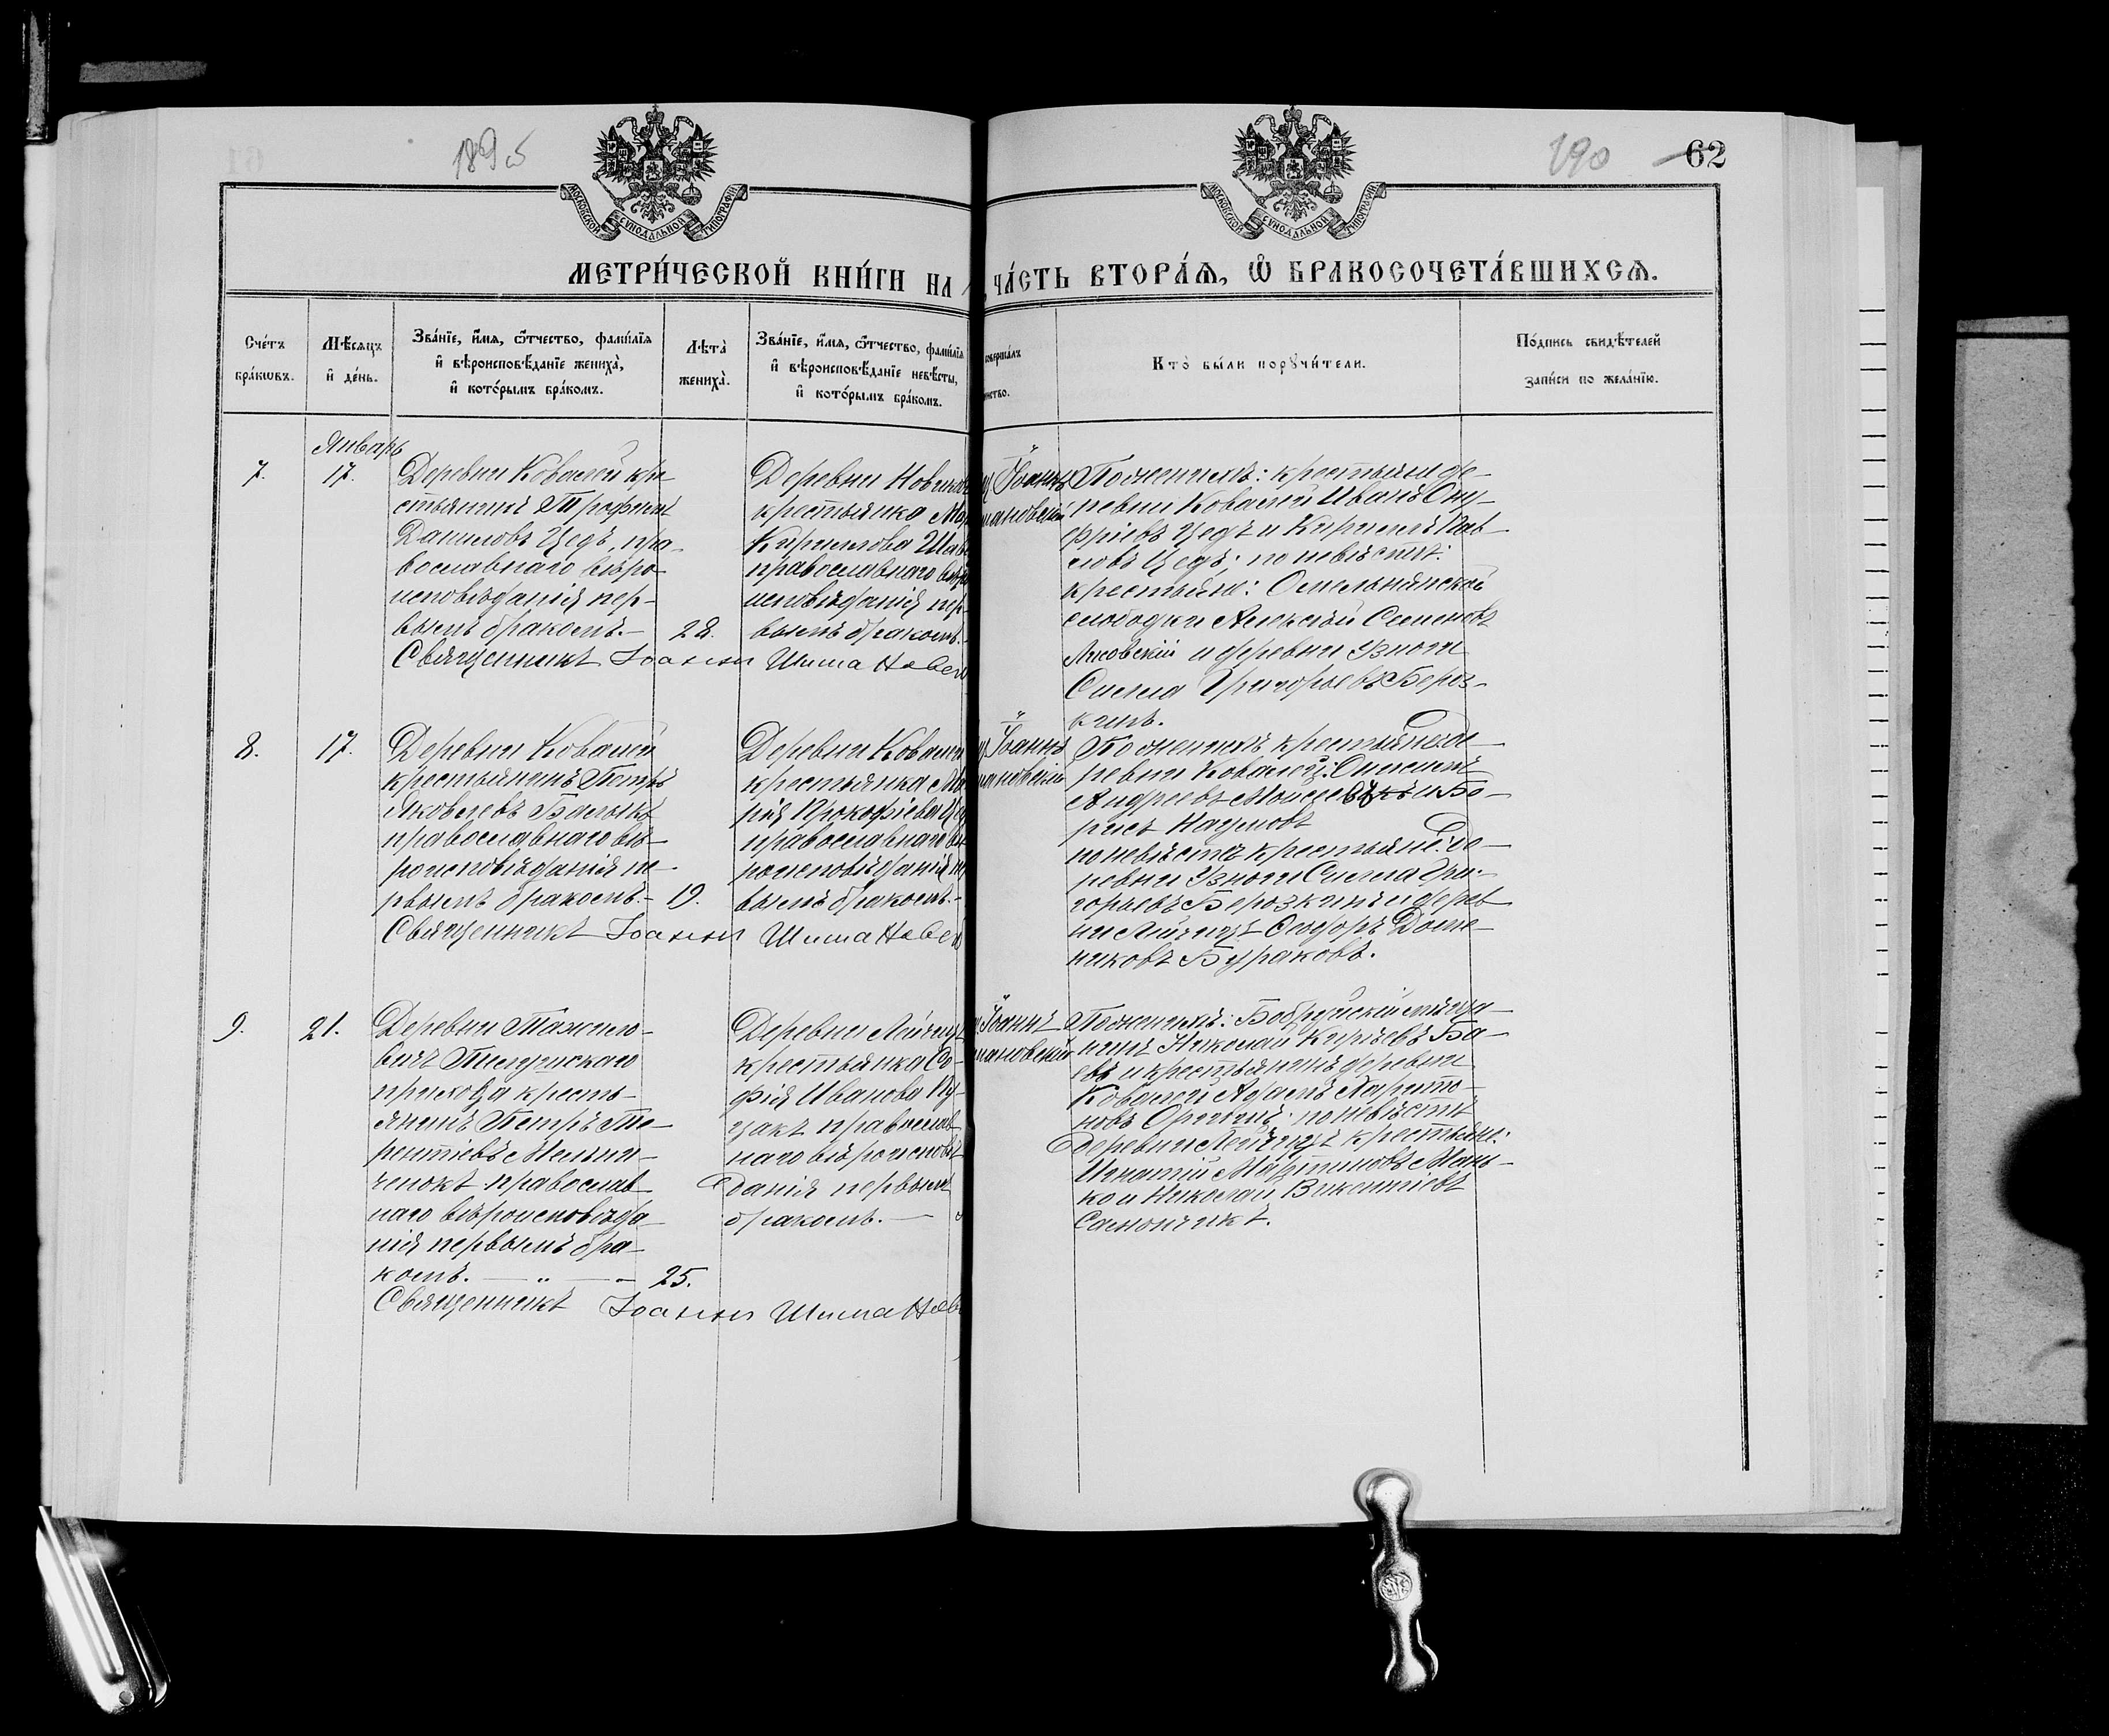 1895
190
62
МОСКОВСКОЙ СѴНОДАЛЬНОЙ ТИПОГРАФІИ
МОСКОВСКОЙ СѴНОДАЛЬНОЙ ТИПОГРАФІИ
МЕТРИ́ЧЕСКОЙ КНИ́ГИ НА
ЧА́СТЬ ВТОРА́Ѧ, Ѿ БРАКОСОЧЕТА́ВШИХСѦ.
Сче́тъ
бра́кѡвъ.
Мѣ́сяцъ
и҆ де́нь.
Зва́нїе, и҆́мѧ, ѻ҆́тчество, фами́лїѧ
и҆ вѣроисповѣ́данїе жениха̀,
и҆ кото́рымъ бра́комъ.
Лѣта̀
жениха̀.
Зва́нїе, и҆́мѧ, ѻ҆́тчество, фами́лїѧ
и҆ вѣроисповѣ́данїе невѣ́сты,
и҆ кото́рымъ бра́комъ.
соверша́лъ
нство.
Кто̀ бы́ли порꙋчи́тели.
По́дпись свидѣ́телей
за́писи по жела́нїю.
Январь
7.
17.
Деревни Ковалей кре-
стьянинъ Трофимъ
Даниловъ Цедъ, пра-
вославнаго вѣро-
исповѣданія пер-
вымъ бракомъ.-
28.
Священникъ Іоаннъ Шима
Деревни
крестьянка
Кирилова
православнаго
исповѣданія пер-
вымъ бракомъ.-
Іоаннъ
мановскій
По женихѣ: крестьяне де-
ревни Ковалей Иванъ Ону-
фріевъ Цедъ и Кириллъ Пав-
ловъ Цедъ; по невѣстѣ:
крестьяне: Омельнянской
слободки Алексѣй Семеновъ
Лисовскій и деревни Узноги
Сисла Григорьевъ Берез-
кинъ.
8.
17.
Деревни Ковалей
крестьянинъ Петръ
Яковлевъ
православнаго вѣ-
роисповѣданія пе-
рвымъ бракомъ.-
19.
Священникъ Іоаннъ Шима
Деревни Ковалей
крестьянка Ма
рія Прокофіева
православнаго
роисповѣданія
вымъ бракомъ.-
Іоаннъ
мановскій
По женихѣ крестьяне де-
ревни Ковалей:
Андреевъ и Бо-
рисъ Наумовъ
по невѣстѣ крестьяне де-
ревни Узноги Сисла Гри-
горьевъ Березкинъ и дерев
ни Лейчицъ Ѳеодоръ
Бураковъ.
9.
21.
Деревни
прихода кресть-
янинъ Петръ Те-
рентіевъ
ченокъ православ
наго вѣроисповѣда
нія первымъ бра-
комъ.
25.
Священникъ Іоаннъ Шима
Деревни Лейчицъ
крестьянка Со-
фія Ивановна
православ
наго вѣроисповѣ
данія первымъ
бракомъ.
Іоаннъ
мановскій
По женихѣ: Бобруйскій мѣща-
нинъ Николай
и крестьянинъ деревни
Ковалей Адамъ Харито-
новъ по невѣстѣ
деревни Лейчицъ крестьяне:
Игнатій Мартиновъ Мань-
ко и Николай Викентіевъ